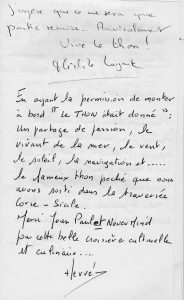 J'espère que ce ne sera que
partie remise. Amicalement
Vive le thon!
En ayant la permission de monter
à bord "LE THON était donné":
Un partage de passion, le
vivant de la mer, le vent,
le soleil, la navigation et.....
le fameux thon poché que nous
avons sorti dans la traversée
Corse - Sicile.
Merci Jean Paul et Never Mind
par cette belle croisière culturelle
et culinaire....
Hervé